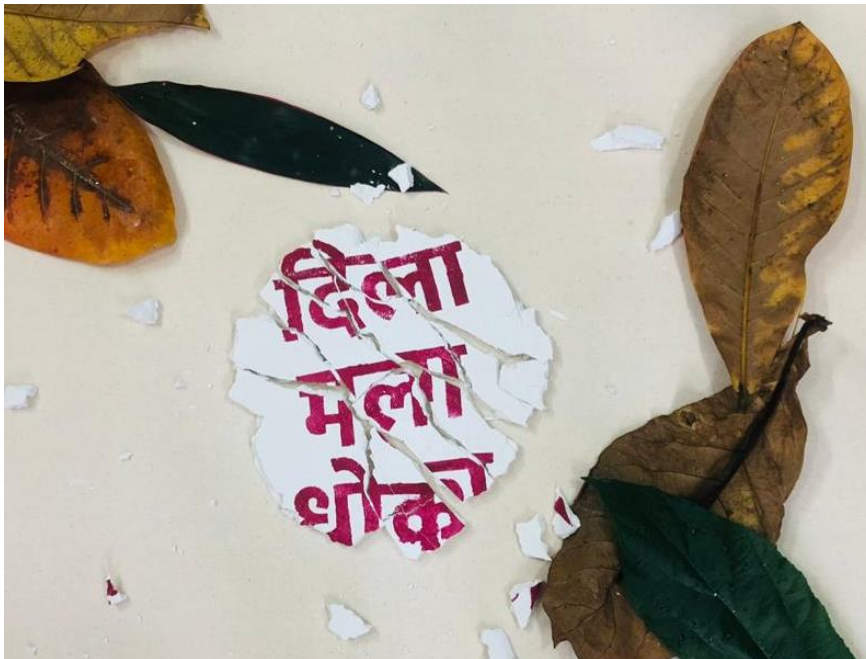 दिला
मला
धोका